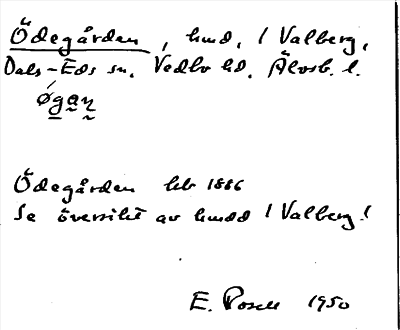 Ödegården, hmd, i Valberg,
Dals-Eds sn, Vedbo hd, Älvsb. l.
ǿgan
Ödegården hfs 1886
Se översikt av hmdd i Valberg!
E. Posse 1950